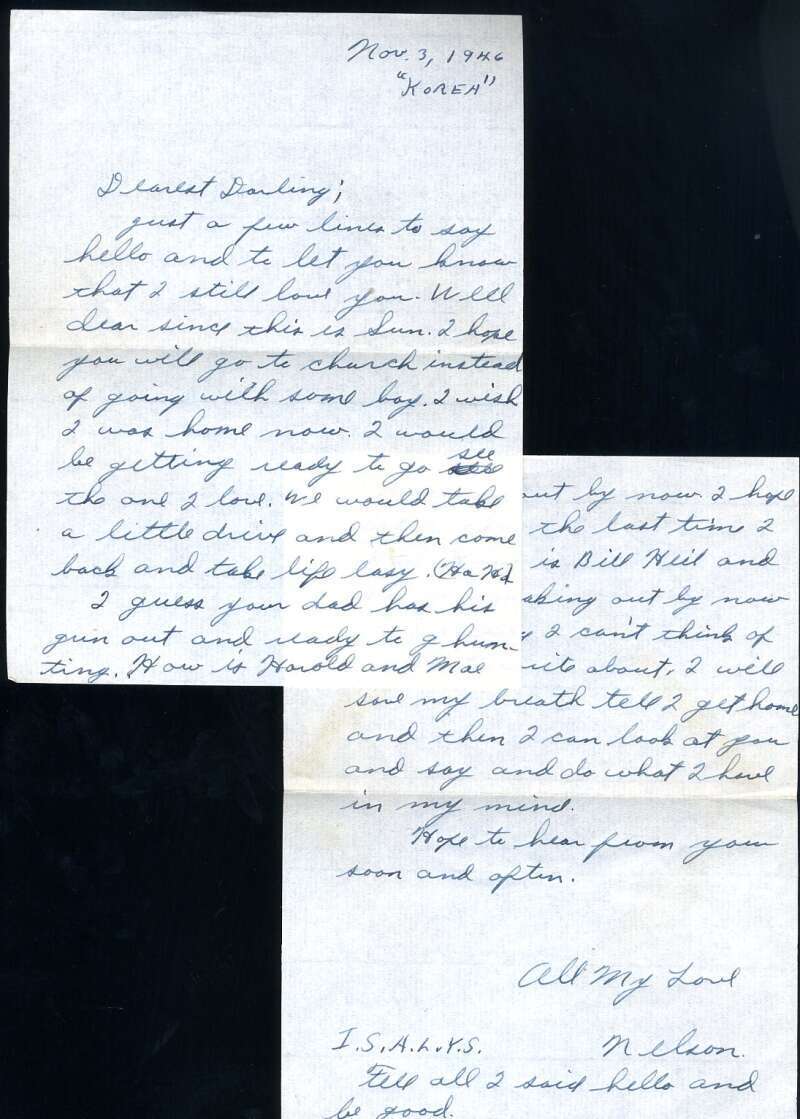 Nov. 3, 1946
"KOREA"
Dearest Darling;
Just a few lines to say
hello and to let you know
that I still love you. Well
dear since this is Sun. I hope
you will go to church instead
of going with some boy. I wish
I was home now. I would
be getting ready to go see
the one I love. We would take
a little drive and then come
back and take life easy. (Ha Ha)
I guess your dad has his
gun out and ready to g hun-
ting. How is Harold and Mae
out by now. I hope
the last time I
is Bill Heil and
aking out by now
I can't think of
rite about. I will
save my breath tell I get home
and then I can look at you
and say and do what I have
in my mind.
Hope to hear from you
soon and often.
All My Love
I.S.A.L.Y.S. Nelson.
Tell all I said hello and
be good.